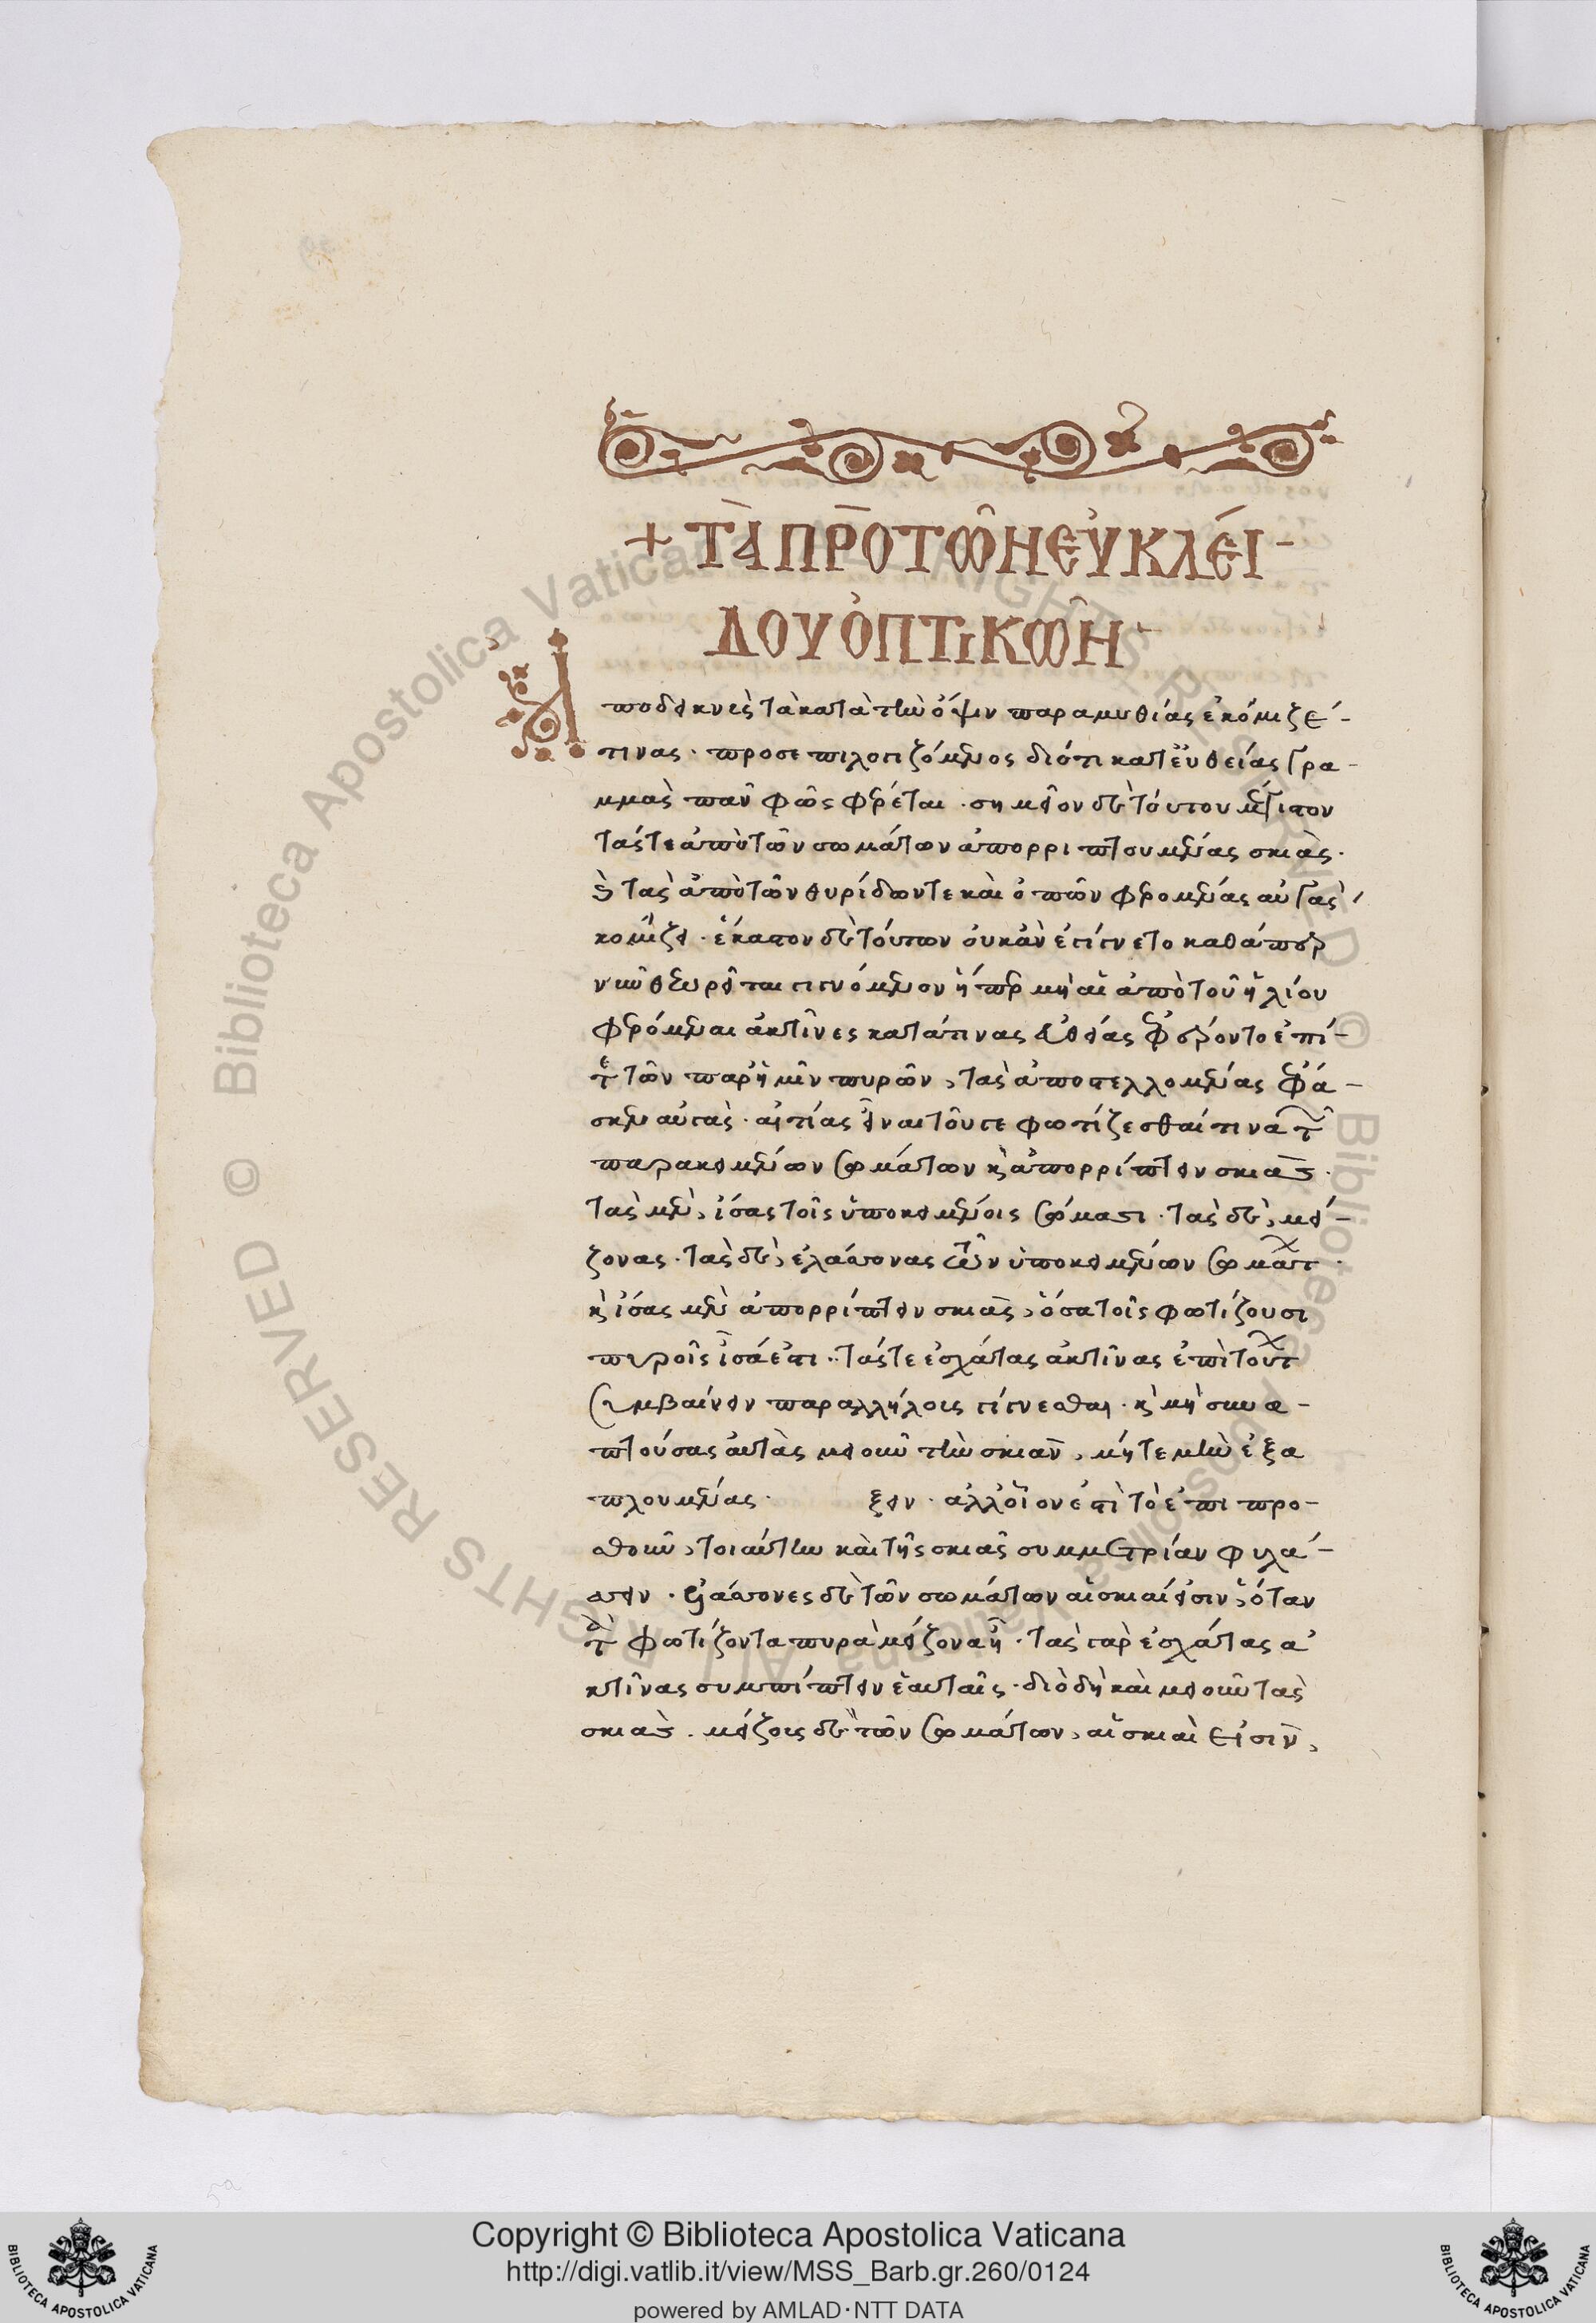 + ΤᾺ ΠΡΟ ΤΩ͂Ν ΕΥ̓ΚΛΕΊ-
ΔΟΥ ὈΠΤΙΚΩ͂Ν
Ἀ
ποδεικνὺς τὰ κατὰ τὴν ὄψιν παραμυθίας ἐκόμιζέ-
τινας· προσεπιλογιζόμενος διότι κατ' εὐθείας γρα-
μμὰς πᾶν φῶς φέρεται· σημεῖον δὲ τούτου μέγιστον
τάς τε ἀπὸ τῶν σωμάτων ἀπορριπτουμένας σκιάς·
καὶ τὰς ἀπὸ τῶν θυρίδων τε καὶ ὀπῶν φερομένας αὐγὰς
κομίζει· ἕκαστον δὲ τούτων οὐκ ἂν ἐγίγνετο καθάπερ
νῦν θεωρεῖται γιγνόμενον ἤπερ μὴ αἱ ἀπὸ τοῦ ἡλίου
φερόμεναι ἀκτῖνες κατά τινας εὐθείας ἐφέροντο ἐπί-
τε τῶν παρ' ἡμῖν πυρῶν, τὰς ἀποστελλομένας ἔφα-
σκεν αὐγὰς· αἰτίας εἶναι τοῦ τε φωτίζεσθαί τινα τῶν
παρακειμένων σωμάτων καὶ ἀπορρίπτειν σκιάς·
τὰς μὲν, ἴσας τοῖς ὑποκειμένοις σώμασι· τὰς δὲ, μεί-
ζονας· τὰς δὲ, ἐλάττονας τῶν ὑποκειμένων σωμάτων·
καὶ ἴσας μὲν ἀπορρίπτειν σκιὰς, ὅσα τοῖς φωτίζουσι
πυροῖς ἴσα ἐστι· τάς τε ἐσχάτας ἀκτῖνας ἐπὶ τούτων
συμβαίνειν παραλλήλοις γίγνεσθαι· καὶ μὴ συνα-
πτούσας αὐτὰς μειοῦν τὴν σκιὰν, μήτε μὴν ἐξα
πλουμένας· ξειν· ἀλλ' οἷον ἐστὶ τὸ ἐπιπρο-
σθοῦν, τοιαύτην καὶ τῆς σκιᾶς συμμετρίαν φυλά-
ττειν· ἐλάττονες δὲ τῶν σωμάτων αἱ σκιαί εἰσιν, ὅταν
τὰ φωτίζοντα πυρὰ μείζονα ᾖ· τὰς γὰρ ἐσχάτας ἀ
κτῖνας συμπίπτειν ἑαυταῖς· διὸ δὴ καὶ μειοῦν τὰς
σκιάς· μείζοις δὲ τῶν σωμάτων, αἱ σκιαὶ εἰσὶν,
Copyright © Biblioteca Apostolica Vaticana
http://digi.vatlib.it/view/MSS_Barb.gr.260/0124
powered by AMLAD·NTT DATA
BIBLIOTECA APOSTOLICA VATICANA
BIBLIOTECA APOSTOLICA VATICANA
© Biblioteca Apostolica Vaticana ALL RIGHTS RESERVED © Biblioteca Apostolica Vaticana ALL RIGHTS RESERVED